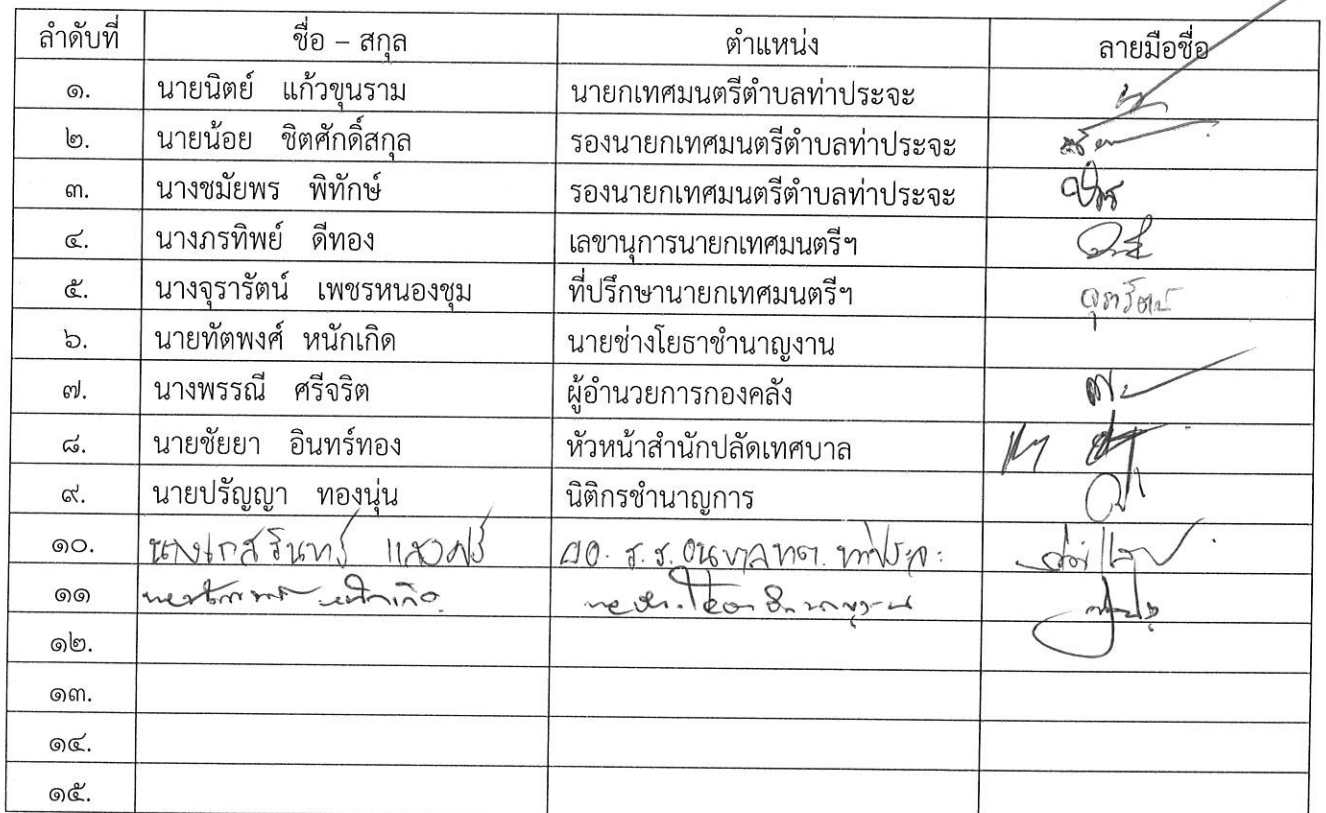 ลำดับที่ ชื่อ – สกุล ตำแหน่ง ลายมือชื่อ
๑. นายนิตย์ แก้วขุนราม นายกเทศมนตรีตำบลท่าประจะ
๒. นายน้อย ชิตศักดิ์สกุล รองนายกเทศมนตรีตำบลท่าประจะ
๓. นางชมัยพร พิทักษ์ รองนายกเทศมนตรีตำบลท่าประจะ
๔. นางภรทิพย์ ดีทอง เลขานุการนายกเทศมนตรีฯ
๕. นางจุรารัตน์ เพชรหนองชุม ที่ปรึกษานายกเทศมนตรีฯ จุรารัตน์
๖. นายทัตพงศ์ หนักเกิด นายช่างโยธาชำนาญงาน
๗. นางพรรณี ศรีจริต ผู้อำนวยการกองคลัง
๘. นายชัยยา อินทร์ทอง หัวหน้าสำนักปลัดเทศบาล
๙. นายปรัญญา ทองนุ่น นิติกรชำนาญการ
๑๐. นางเกสรินทร์ ผอ. ร.ร. อนุบาล ทต. ท่าประจะ
๑๑ หนักเกิด
๑๒.
๑๓.
๑๔.
๑๕.